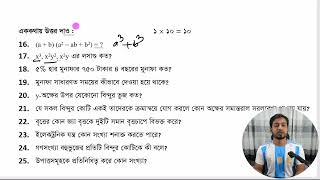 এককথায় উত্তর দাও : ১ × ১০ = ১০
16. (a + b) (a² − ab + b²) = ? a³+b³
17. x³, x²y², x²y এর লসাগু কত?
18. ৫% হার মুনাফার ৭৫০ টাকার ৪ বছরের মুনাফা কত?
19. মুনাফা সাধারণত সময়ের কীভাবে দেওয়া হয়ে থাকে?
20. y-অক্ষের উপর যেকোনো বিন্দুর ভুজ কত?
21. যে সকল বিন্দুর কোটি একই তাদেরকে ক্রমান্বয়ে যোগ করলে কোন অক্ষের সমান্তরাল সরলরেখা পাওয়া যায়?
22. বৃত্তের কোন জ্যা বৃত্তকে দুইটি সমান বৃত্তচাপে বিভক্ত করে?
23. ইলেকট্রনিক যন্ত্র কোন সংখ্যা শনাক্ত করতে পারে?
24. গণসংখ্যা বহুভুজের প্রতিটি বিন্দুর কোটিকে কী বলে?
25. উপাত্তসমূহকে প্রতিনিধিত্ব করে কোন সংখ্যা?